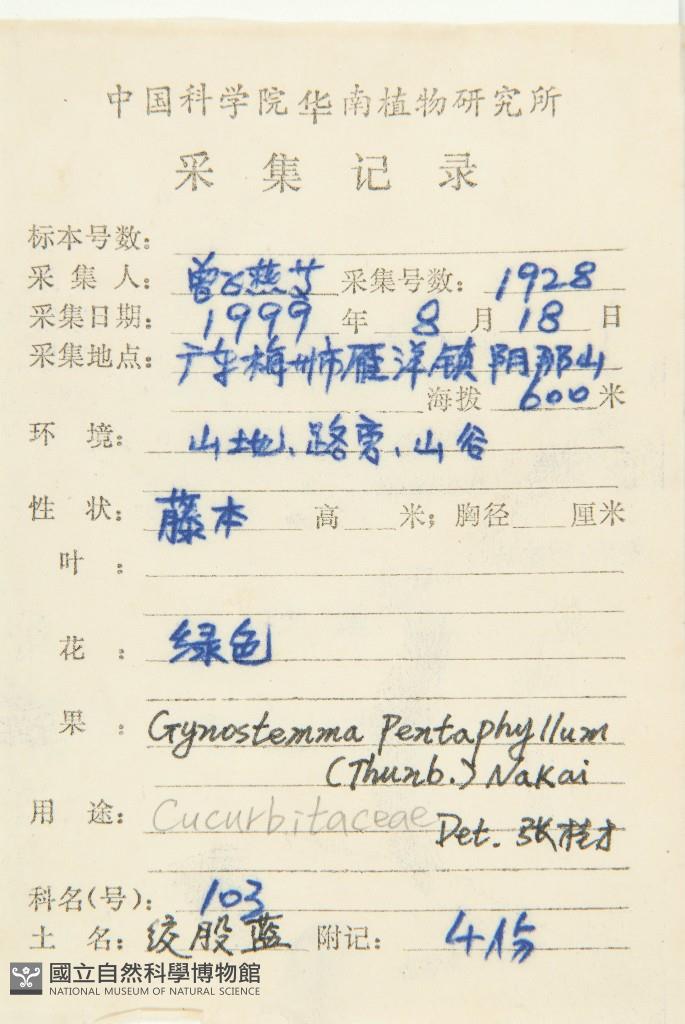 中国科学院华南植物研究所
采集记录
标本号数：
采集人： 曾飞燕等 采集号数： 1928
采集日期： 1999 年 8 月 18 日
采集地点： 广东梅州市雁洋镇阴那山
海拔 600 米
环境： 山地、路旁、山谷
性状： 藤本 高 米；胸径 厘米
叶：
花： 绿色
果： Gynostemma Pentaphyllum
(Thunb.) Nakai
用途： Cucurbitaceae
Det. 张桂才
科名(号)： 103
土名： 绞股蓝 附记： 4份
國立自然科學博物館
NATIONAL MUSEUM OF NATURAL SCIENCE